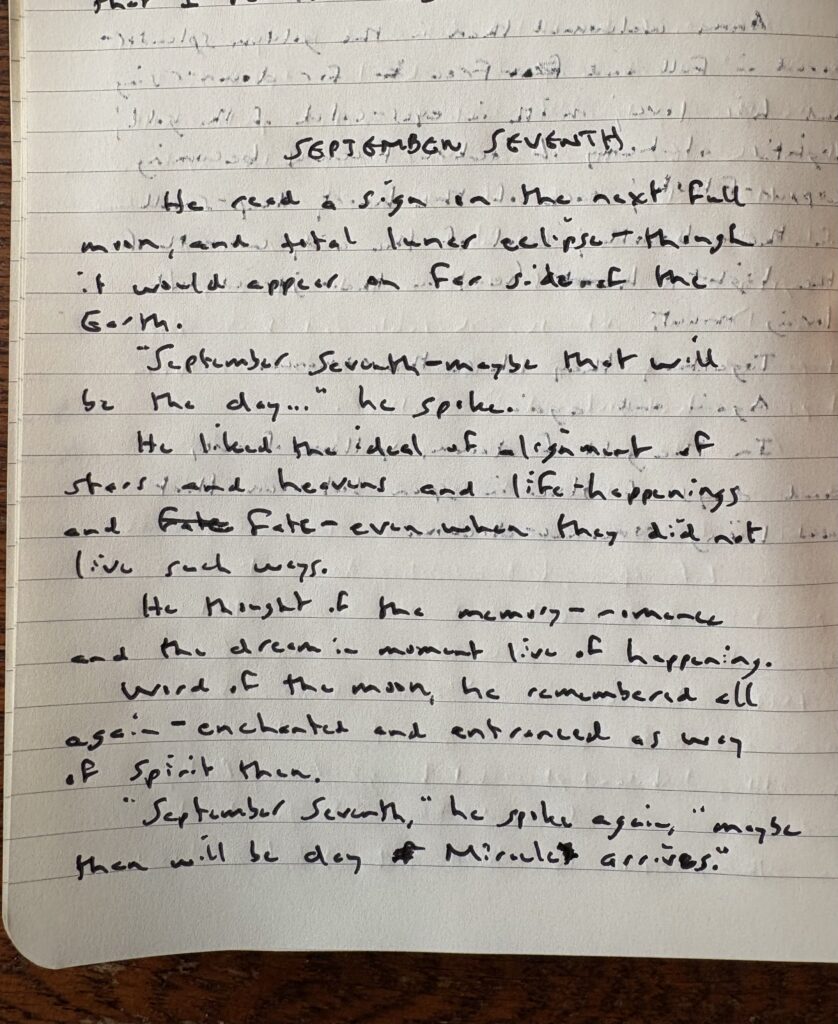 that I
SEPTEMBER SEVENTH.
He read a sign on the next full
moon, and total lunar eclipse—though
it would appear on far side of the
Earth.
"September Seventh—maybe that will
be the day..." he spoke.
He liked the ideal of alignment of
stars and heavens and life-happenings
and Fate Fate—even when they did not
live such ways.
He thought of the memory-romance
and the dream in moment live of happening.
Word of the moon, he remembered all
again—enchanted and entranced as way
of spirit then.
"September Seventh," he spoke again, "maybe
then will be day Miracle arrives."